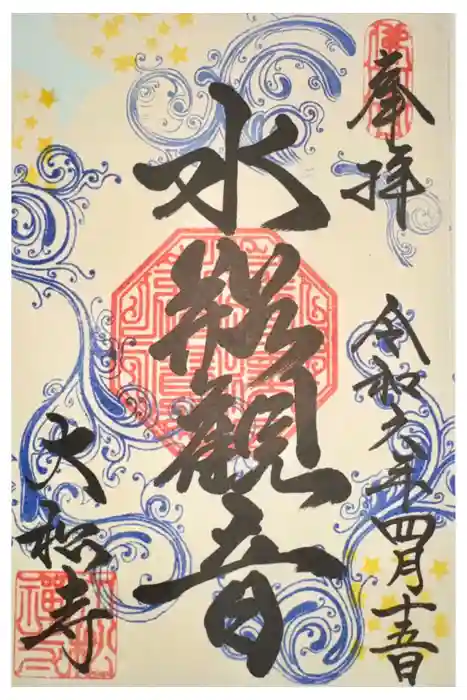 奉拝
水 観音
令和六年四月十五日
大松寺